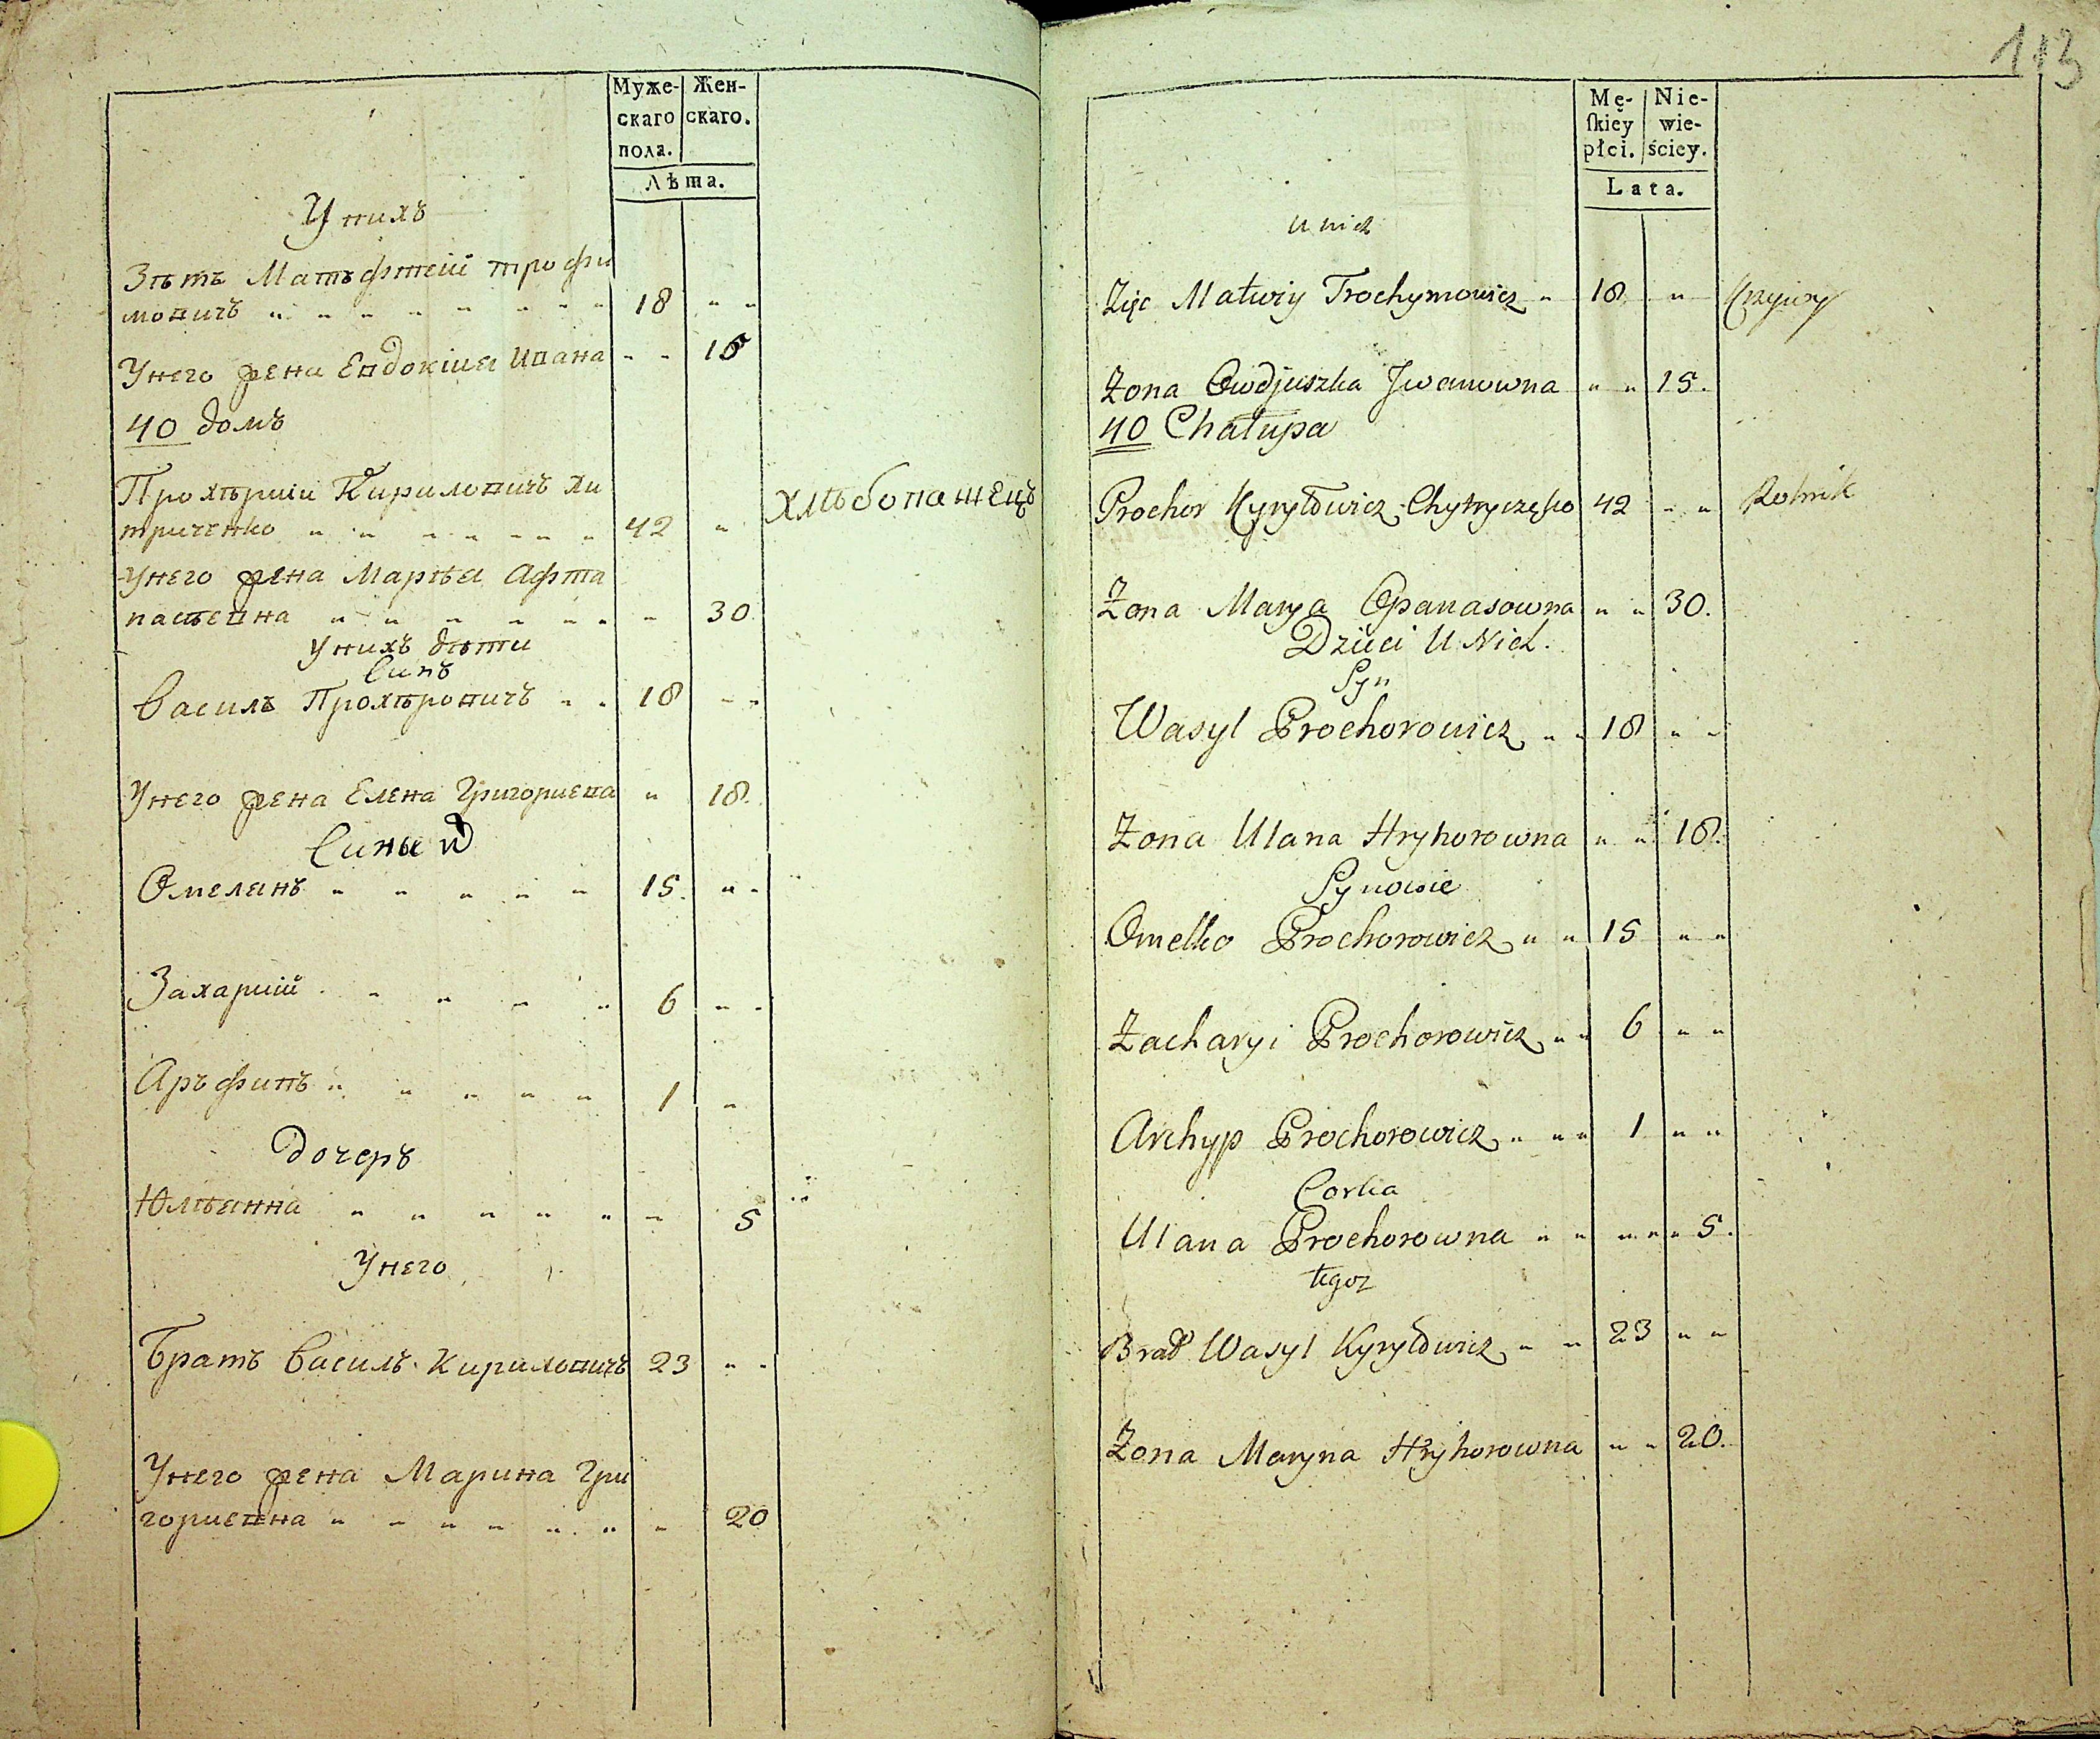 Муже- Жен-
скаго скаго.
пола.
Лѣта.
У нихъ
Зѣть Матьфтей трофи
мовичъ 18
Унего жена Евдокия Ивана 15
40 домъ
Прохѣрий Кириловичъ хи
триченко 42 хлѣбопашецъ
Унего жена Марѣя Афта
насѣевна 30
У нихъ дѣти
Синъ
Василь Прохѣровичъ 18
Унего жена Елена Григориева 18
Сины
Омелянъ 15
Захарий 6
Арьфипъ 1
Дочеръ
Юлѣянна 5
Унего
Братъ Василь Кириловичъ 23
Унего жена Марина Гри
гориевна 20
113
Mę- Nie-
ſkiey wie-
płci. ściey.
Lata.
U nich
Zięc Matwiy Trochymowicz 18 Krzywy
Zona Owdjuszka Jwanowna 15.
40 Chałupa
Prochor Kyryłowicz Chytryczęko 42 Rolnik
Zona Marya Opanasowna 30.
Dzieci U Nich.
Syn
Wasyl Prochorowicz 18
Zona Ulana Hryhorowna 18.
Synowie
Omelko Prochorowicz 15
Zacharyi Prochorowicz 6
Archyp Prochorowicz 1
Corka
Ulana Prochorowna 5.
tegoz
Brat Wasyl Kyryłowicz 23
Zona Maryna Hryhorowna 20.